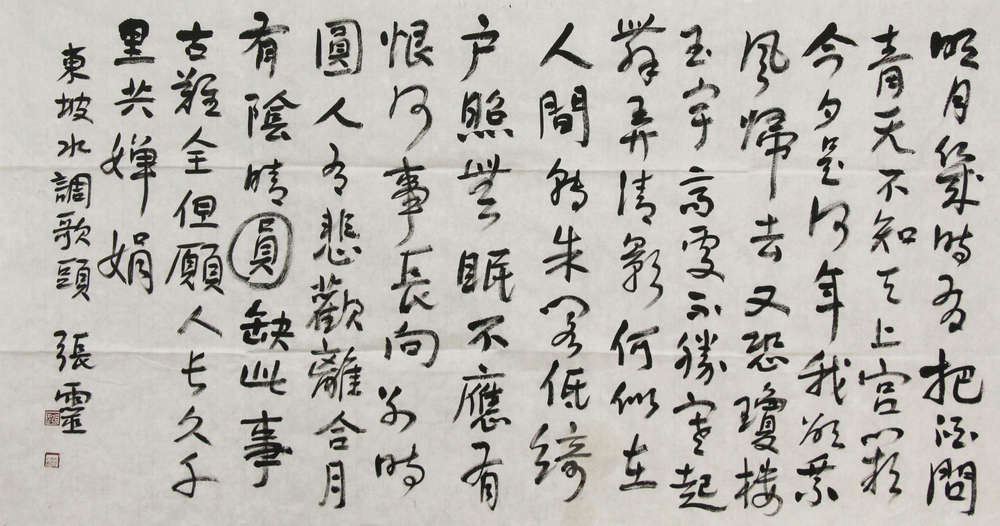 明月幾時有把酒問
青天不知天上宮闕
今夕是何年我欲乘
風歸去又恐瓊樓
玉宇高處不勝寒起
舞弄清影何似在
人間轉朱閣低綺
户照無眠不應有
恨何事長向别時
圓人有悲歡離合月
有陰晴圓缺此事
古難全但願人長久千
里共嬋娟
東坡水調歌頭 張靈